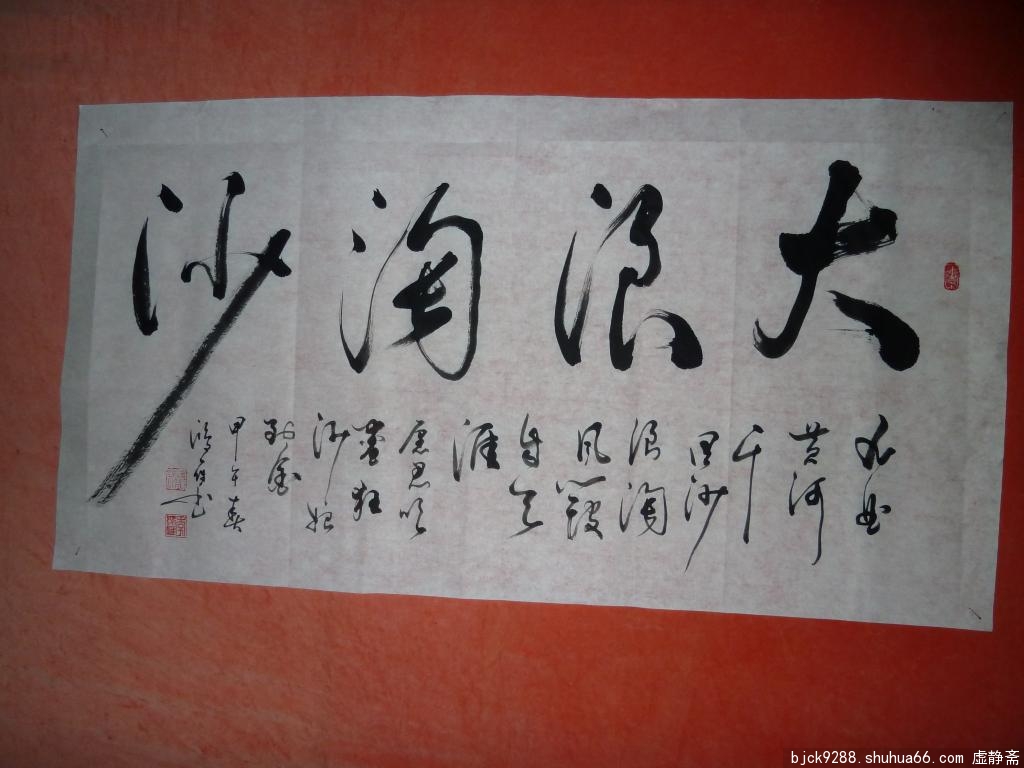 大浪淘沙
九曲
黄河
千
里沙
浪淘
风簸
自天
涯
吹
尽狂
沙始
到金
甲午春
书
bjck9288.shuhua66.com 虚静斋